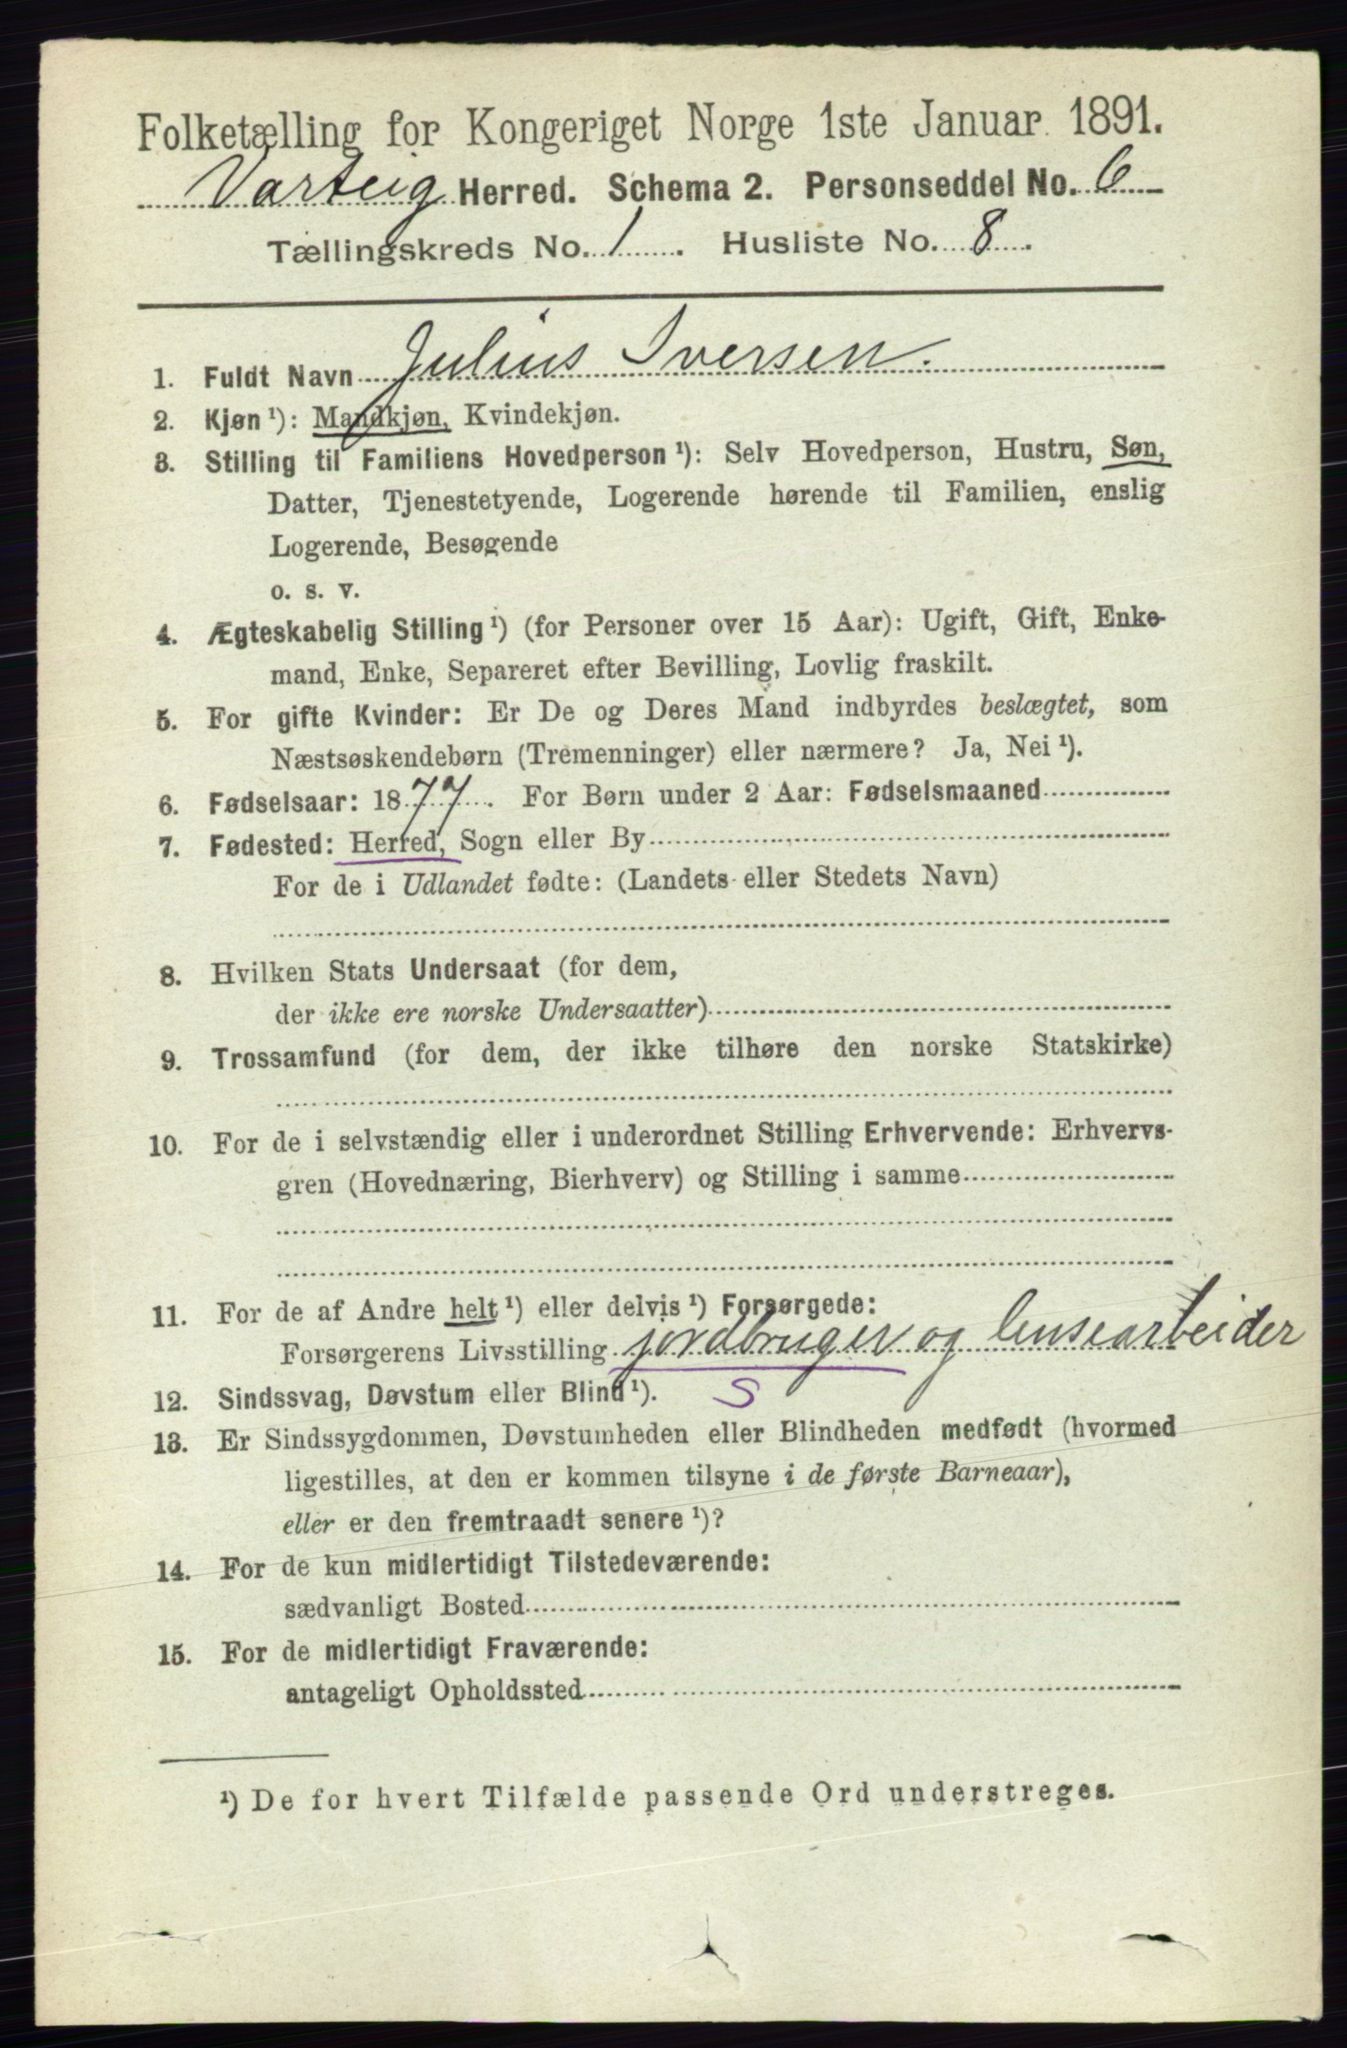 Folketælling for Kongeriget Norge 1ste Januar 1891.
Varteig Herred. Schema 2. Personseddel No. 6
Tællingskreds No. 1. Husliste No. 8.
1. Fuldt Navn Julius Iversen.
2. Kjøn ¹): Mandkjøn, Kvindekjøn.
3. Stilling til Familiens Hovedperson ¹): Selv Hovedperson, Hustru, Søn,
Datter, Tjenestetyende, Logerende hørende til Familien, enslig
Logerende, Besøgende
o. s. v.
4. Ægteskabelig Stilling ¹) (for Personer over 15 Aar): Ugift, Gift, Enke-
mand, Enke, Separeret efter Bevilling, Lovlig fraskilt.
5. For gifte Kvinder: Er De og Deres Mand indbyrdes beslægtet, som
Næstsøskendebørn (Tremenninger) eller nærmere? Ja, Nei ¹).
6. Fødselsaar: 1877. For Børn under 2 Aar: Fødselsmaaned
7. Fødested: Herred, Sogn eller By
For de i Udlandet fødte: (Landets eller Stedets Navn)
8. Hvilken Stats Undersaat (for dem,
der ikke ere norske Undersaatter)
9. Trossamfund (for dem, der ikke tilhøre den norske Statskirke)
10. For de i selvstændig eller i underordnet Stilling Erhvervende: Erhvervs-
gren (Hovednæring, Bierhverv) og Stilling i samme
11. For de af Andre helt ¹) eller delvis ¹) Forsørgede:
Forsørgerens Livsstilling jordbruger og lensearbeider
12. Sindssvag, Døvstum eller Blind ¹). S
13. Er Sindssygdommen, Døvstumheden eller Blindheden medfødt (hvormed
ligestilles, at den er kommen tilsyne i de første Barneaar),
eller er den fremtraadt senere ¹)?
14. For de kun midlertidigt Tilstedeværende:
sædvanligt Bosted
15. For de midlertidigt Fraværende:
antageligt Opholdssted
¹) De for hvert Tilfælde passende Ord understreges.